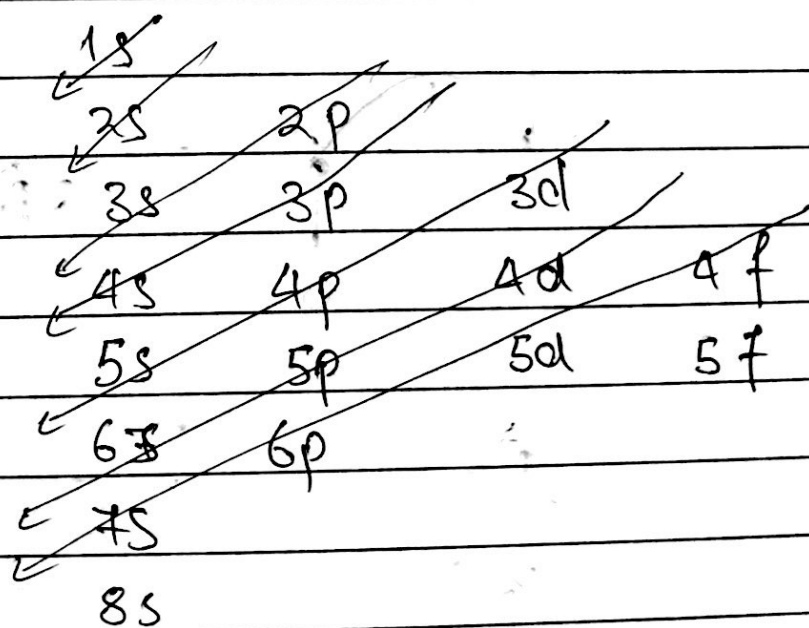 1s
2s 2p
3s 3p 3d
4s 4p 4d 4f
5s 5p 5d 5f
6s 6p
7s
8s